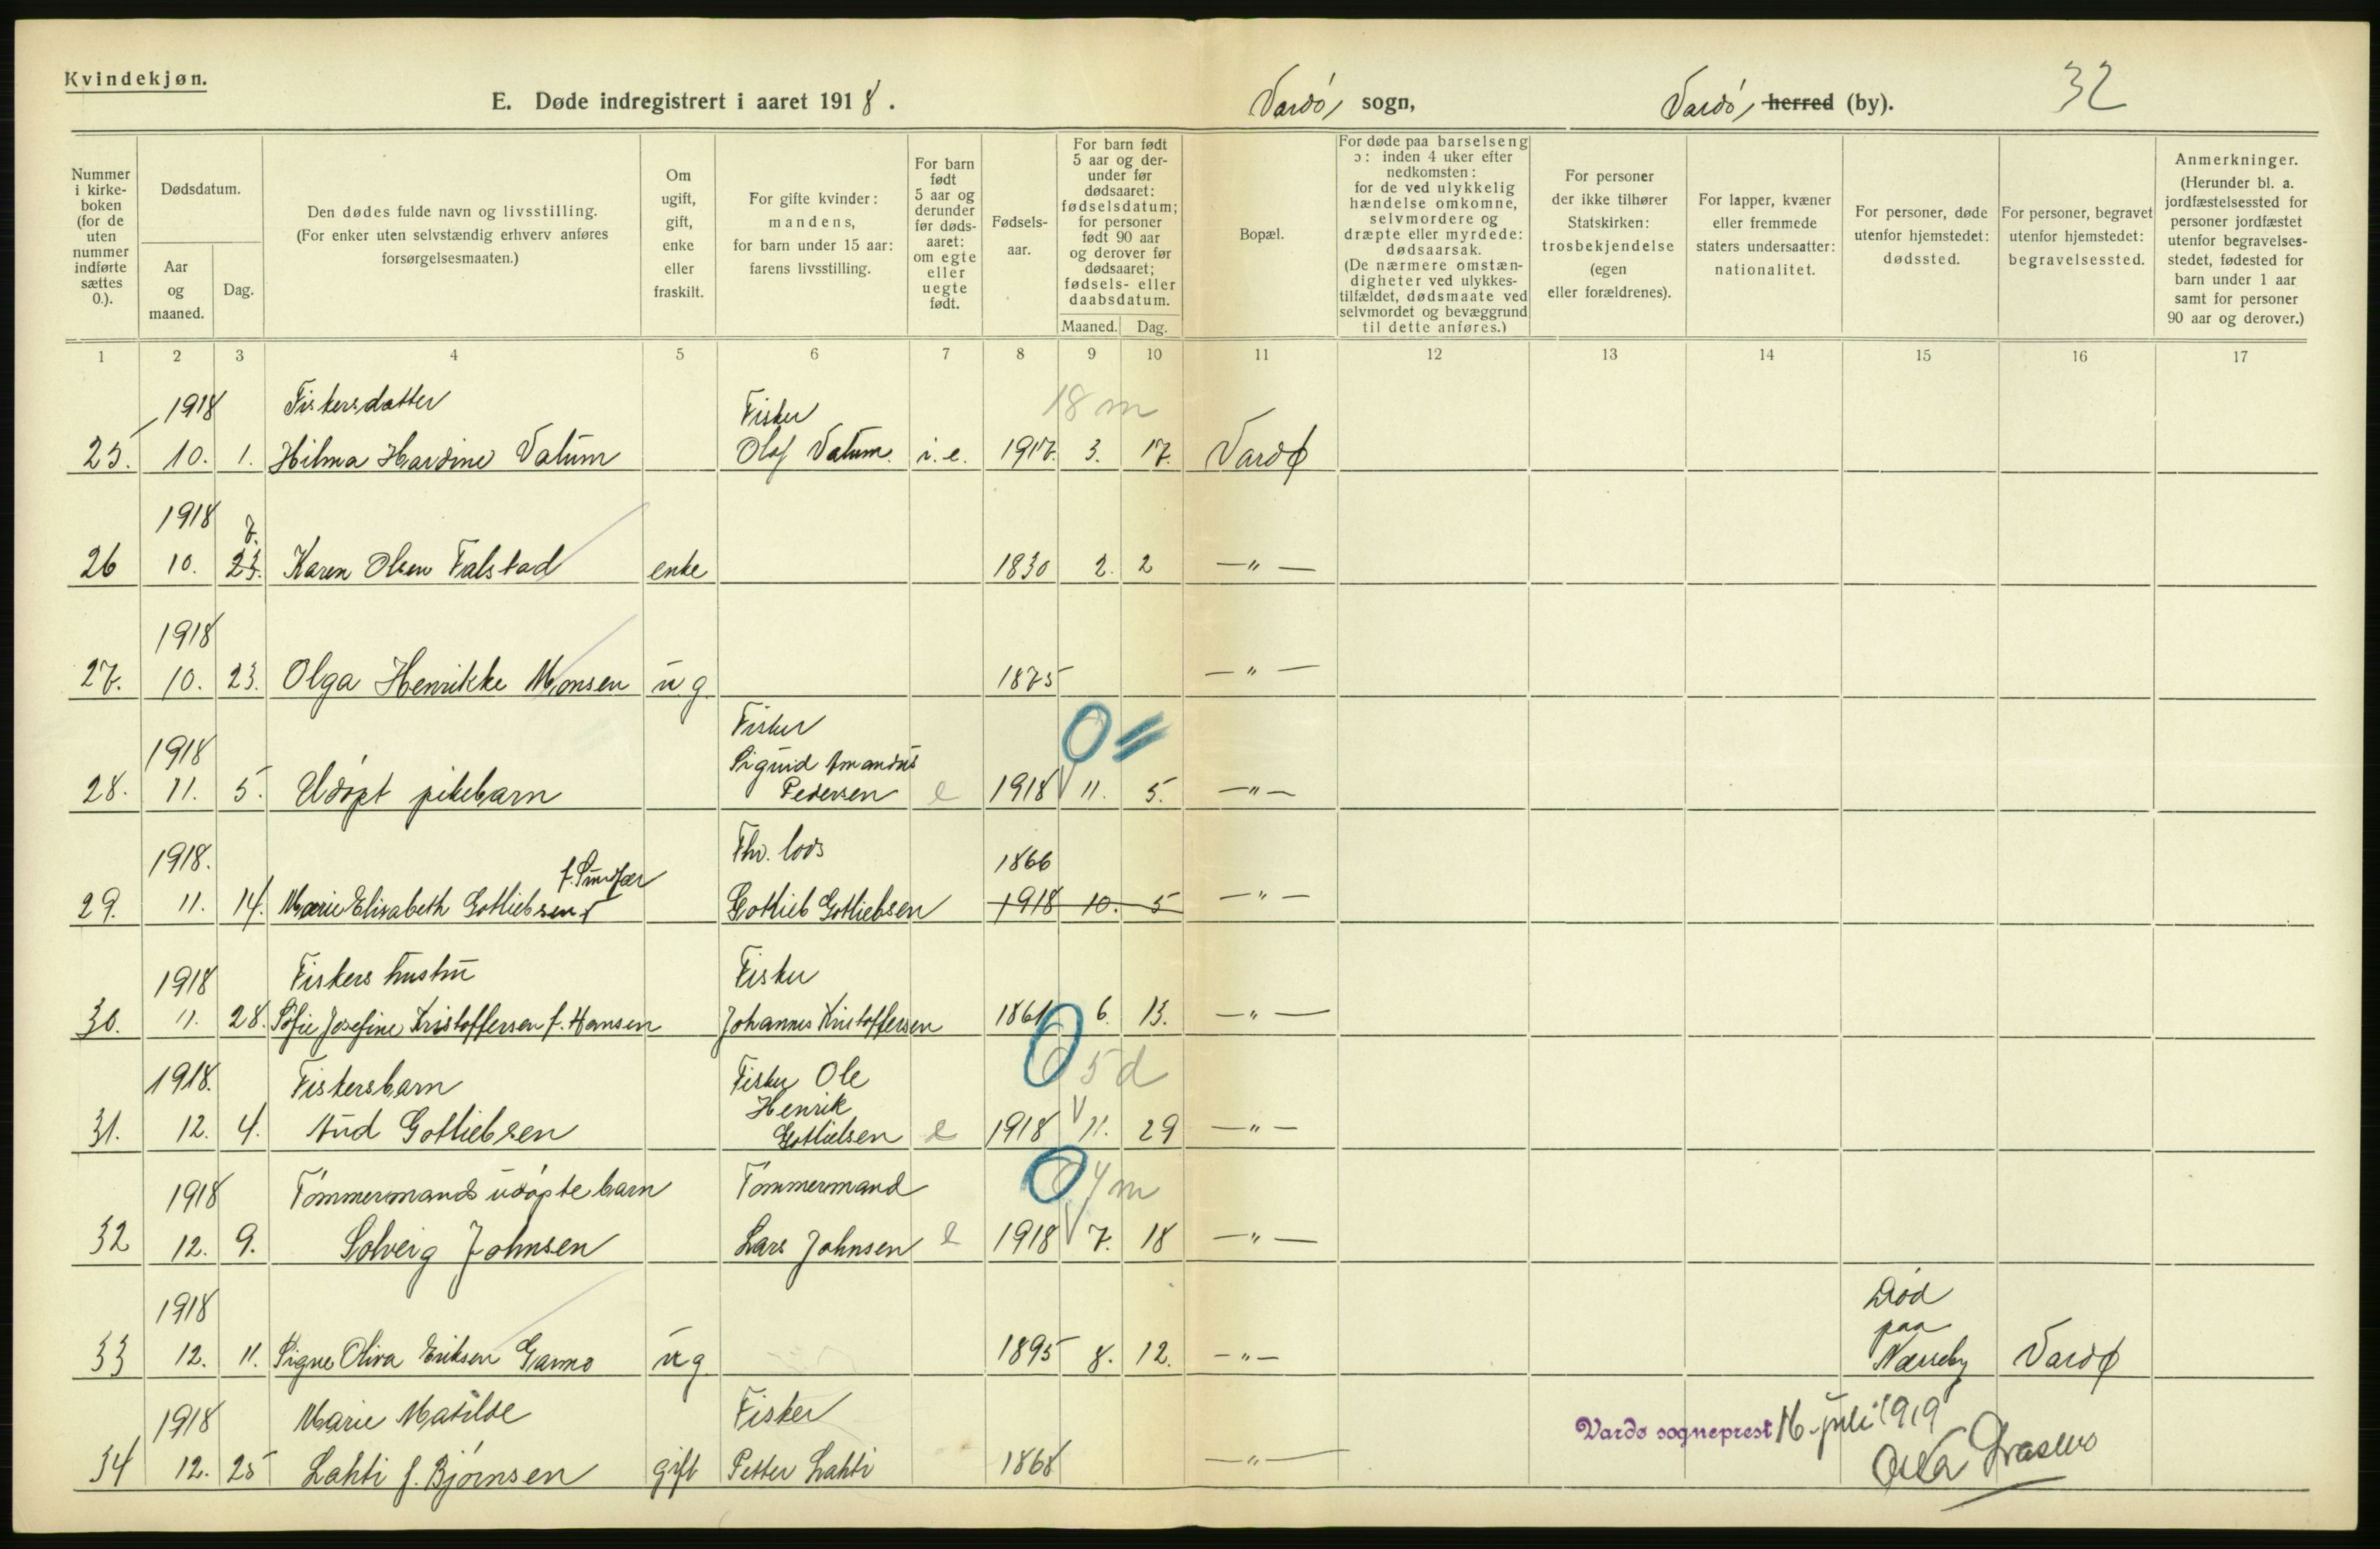 Kvindekjøn.
E. Døde indregistrert i aaret 1918.
Vardø sogn,
Vardø herred (by).
32
Nummer i kirkeboken (for de uten nummer indførte sættes 0.).
Dødsdatum.
Aar og maaned.
Dag.
Den dødes fulde navn og livsstilling.
(For enker uten selvstændig erhverv anføres
forsørgelsesmaaten.)
Om ugift, gift, enke eller fraskilt.
For gifte kvinder:
mandens,
for barn under 15 aar:
farens livsstilling.
For barn født 5 aar og derunder før dødsaaret: om egte eller uegte født.
Fødselsaar.
For barn født 5 aar og derunder før dødsaaret: fødselsdatum; for personer født 90 aar og derover før dødsaaret; fødsels- eller daabsdatum.
Maaned. Dag.
Bopæl.
For døde paa barselseng
ɔ: inden 4 uker efter
nedkomsten:
for de ved ulykkelig
hændelse omkomne,
selvmordere og
dræpte eller myrdede:
dødsaarsak.
(De nærmere omstæn-
digheter ved ulykkes-
tilfældet, dødsmaate ved
selvmordet og bevæggrund
til dette anføres.)
For personer
der ikke tilhører
Statskirken:
trosbekjendelse
(egen
eller forældrenes).
For lapper, kvæner
eller fremmede
staters undersaatter:
nationalitet.
For personer, døde
utenfor hjemstedet:
dødssted.
For personer, begravet
utenfor hjemstedet:
begravelsessted.
Anmerkninger.
(Herunder bl. a.
jordfæstelsessted for
personer jordfæstet
utenfor begravelses-
stedet, fødested for
barn under 1 aar
samt for personer
90 aar og derover.)
1 2 3 4 5 6 7 8 9 10 11 12 13 14 15 16 17
1918 Fiskersdatter Fisker 18 m
25. 10. 1. Hilma Hardine Vatum Olaf Vatum. i.e. 1917. 3. 17. Vardø
1918 7.
26 10. 23. Karen Olsen Falstad enke 1830 2. 2 —"—
1918
27. 10. 23. Olga Henrikke Monsen ug. 1875 —"—
Fisker 0 =
1918 Sigurd Amandus
28. 11. 5. Udøpt pikebarn Pedersen e 1918 11. 5. —"—
1918. Fhv. lods 1866
29. 11. 14. Marie Elisabeth Gotliebsen Gotlieb Gotliebsen 1918 10. 5 —"—
1918 Fiskers hustru Fisker
30. 11. 28. Sofie Josefine Kristoffersen f. Hansen Johannes Kristoffersen 1861 6. 13. —"—
1918. Fiskersbarn Fisker Ole 0 5 d
Henrik
31. 12. 4. Aud Gotliebsen Gotliebsen e 1918 11. 29 —"—
1918 Tømmermands udøpte barn Tømmermand 0 4 m
32 12. 9. Solveig Johnsen Lars Johnsen e 1918 7. 18 —"—
1918 Død
paa
33 12. 11. Signe Oliva Eriksen Garmo ug. 1895 8. 12. —"— Næsseby Vardø
1918 Marie Matilde Fisker
Vardø sogneprest 16. juli 1919
34 12. 25 Lahti f. Bjørnsen gift Petter Lahti 1868 —"—